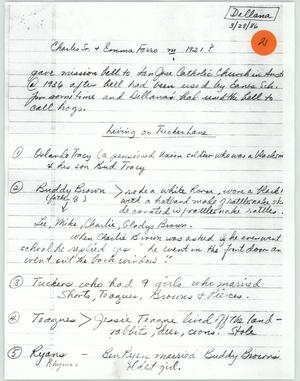 Dellana
3/28/86
21
Charles Sr. & Emma Forro m 1921?
gave mission bell to San Jose Catholic Church in Aust
@ 1936 after bell had been used by Eanes Sch.
for some time and Dellanas had used the bell to
call hogs.
Living on Tucker Lane
① Orlando Tracy (a pensioned Union soldier who was a blacksm
& his son Bud Tracy
② Buddy Brown > rode a white horse, wore a black
with a hatband made of rattlesnake sk
decorated w/ rattlesnake rattles.
Lee, Mike, Charlie, Gladys Brown.
When Charlie Brown was asked if he ever went
school he replied yes, "he went in the front door an
went out the back window."
③ Tuckers who had 9 girls who married
Shorts, Teagues, Browns & Pierces.
④ Teagues > Jessie Teague lived off the land -
rabbits, deer, coons. Stole
⑤ Ryans - Ben Ryan married Buddy Browns
oldest girl.